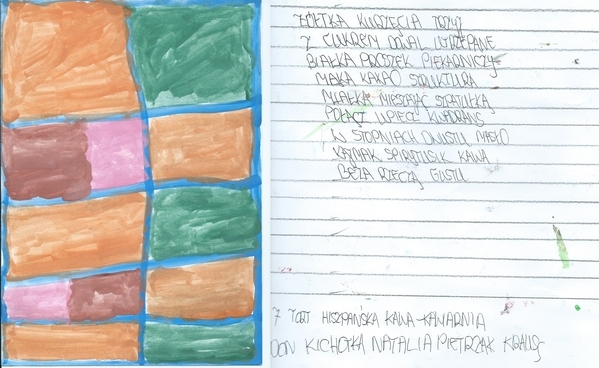 ŻÓŁTKA KURZĘCIA
Z CUKREM DODAL UTRZEPANE
BIAŁKA PROSZEK PIEKARNICZY
MĄKA KAKAO STRUKTURA
MIAŁKA MIESZAĆ SZPATUŁKĄ
POŁĄCZ UPIECZ KWADRANS
W STOPNIACH DWUSTU MASŁO
KOŃIAK SPIRYTUSIK KAWA
BEZA RZECZĄ GUSTU
7 TORT HISZPAŃSKA KAWA-KAWIARNIA
DON KICHOTKA NATALIA PIETRZAK KRAUS